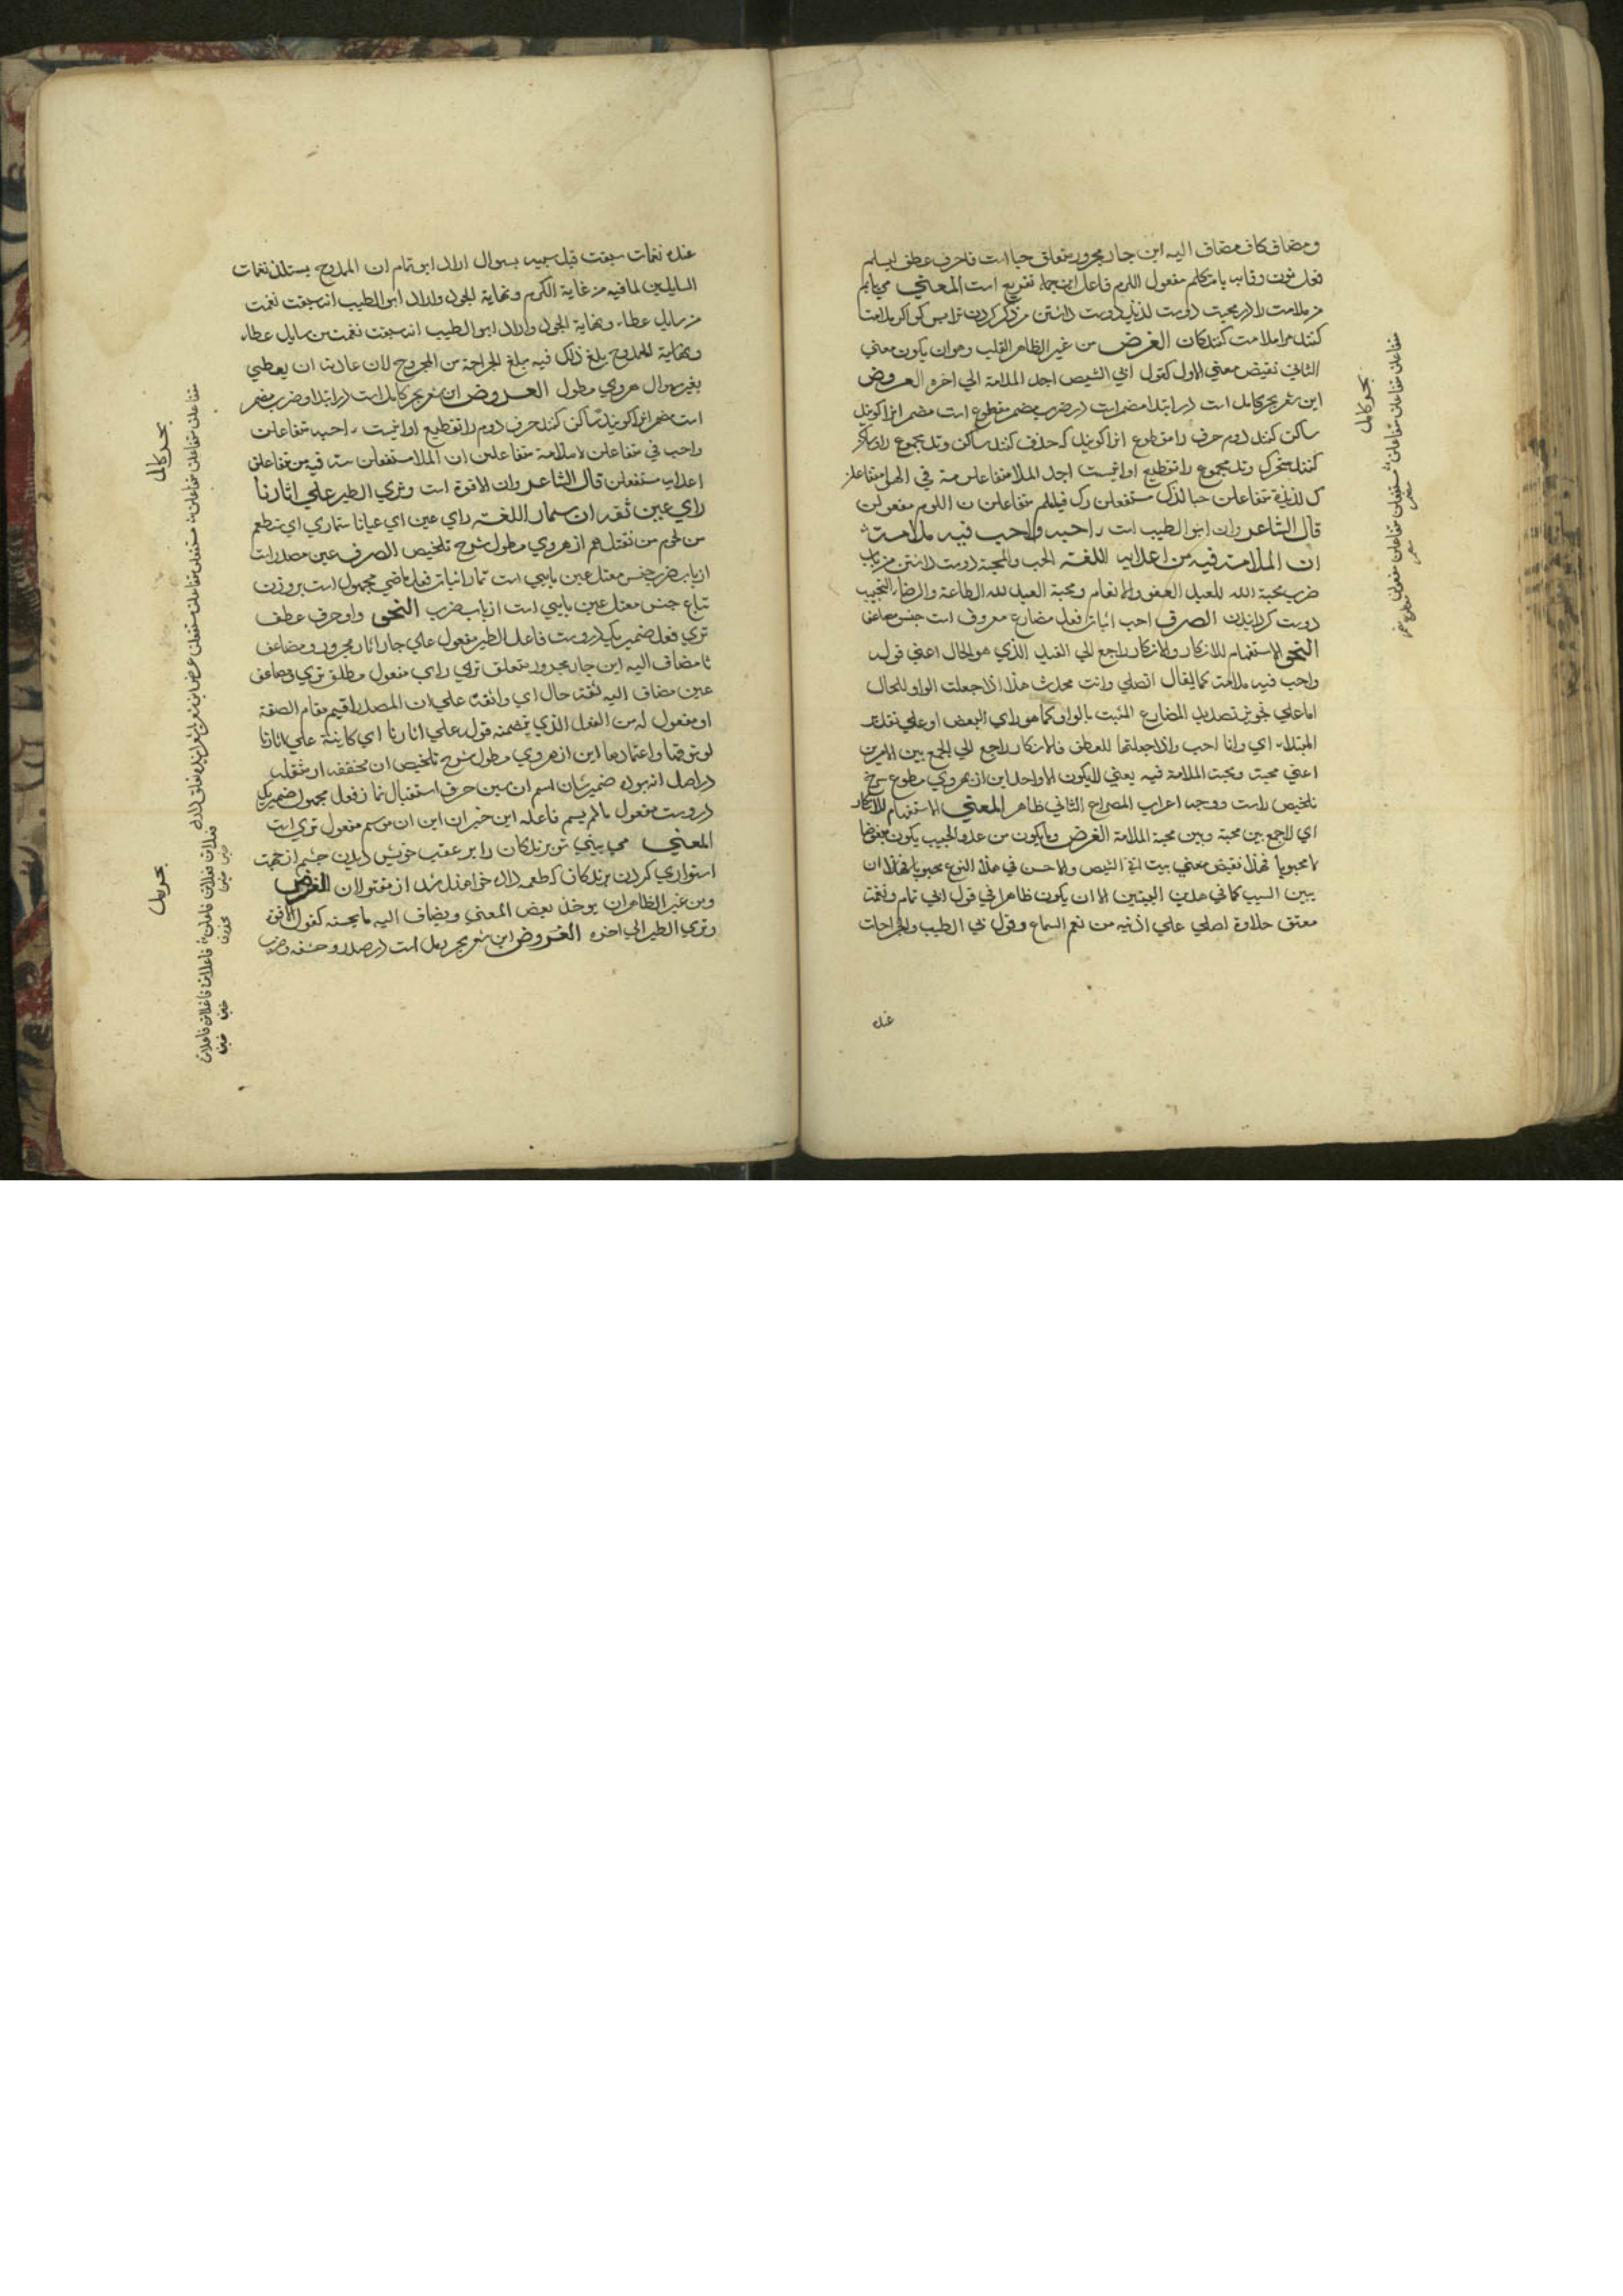 ومضاف كاف مضاف اليه اين جار مجرور متعلق حبا است فا حرف عطف ليسلم
فعل نون وقايه يا متكلم مفعول اللوم فاعل اين جمله تفريع است المعني مي يابم
من ملامت را در محبت دوست لذيذ دوست داشتن من ذكر كردن ترا پس كو اكر ملامت
كنند مرا ملامت كنندكان الغرض من غير الظاهر القلب وهو ان يكون معني
الثاني نقيض معني الاول كقول ابي الشيص اجد الملامة الي اخره العروض
اين شعر بحر كامل است در ابتدا مضمر است در ضرب مضمر مقطوع است مضمر انرا كويند
ساكن كنند دوم حرف را مقطوع انرا كويند كه حذف كنند ساكن وتد مجموع را وساكن
كنند متحرك وتد مجموع را تقطيع او اينست اجد الملا متفاعلن مة في الهوا متفاعلن
ك لذيذة متفاعلن حبا لذك مستفعلن رك فيللم متفاعلن ن اللوم مفعولن
قال الشاعر وان ابو الطيب است ءاحبه واحب فيه ملامت
ان الملامة فيه من اعدايه اللغة الحب والمحبة دوست داشتن من باب
ضرب محبة الله للعبد العفو والانعام ومحبة العبد لله الطاعة والرضا التحبيب
دوست كردانيدن الصرف احب اثبات فعل مضارع معروف است جنس مضاعف
النحو الاستفهام للانكار والانكار راجع الي القيد الذي هو الحال اعني قوله
واحب فيه ملامت كما يقال اتصلي وانت محدث هذا اذا جعلت الواو للحال
اما علي تجويز تصدير المضارع المثبت بالواو كما هو راي البعض او علي تقدير
المبتداء اي وانا احب واذا جعلتها للعطف فالانكار راجع الي الجمع بين الامرين
اعني محبته ومحبت الملامة فيه يعني لا يكون الا واحد اين از هروي مطول شرح
تلخيص راست ووجه اعراب المصراع الثاني ظاهر المعني الاستفهام للانكار
اي لا جمع بين محبة وبين محبة الملامة الغرض وما يكون من عدو الحبيب يكون مبغوضا
لا محبوبا فهذا نقيض معني بيت ابي الشيص والاحسن في هذا النوع
يبين السبب كما في هذين البيتين الا ان يكون ظاهرا في قول ابي تمام ونغمة
معتف حلاوة اصلي علي اذنيه من نغم السماع وقول ابي الطيب والجراحات
عنده
بحر كامل
متفاعلن متفاعلن متفاعلن مستفعلن متفاعلن مفعولن
مضمر مضمر مقطوع مضمر
عنده نغمات سبقت قبل سيبه بسوال اراد ابو تمام ان الممدوح يستلذ نغمات
السايلين لما فيه من غاية الكرم ونهاية الجود واراد ابو الطيب انه سبقت نغمت
من سايل عطاء ونهاية الجود واراد ابو الطيب انه سبقت نغمت من سايل عطاء
ونهاية الممدوح بلغ ذلك فيه مبلغ الجراحة من المجروح لان عادته ان يعطي
بغير سوال هروي مطول العروض اين شعر بحر كامل است در ابتدا وضرب مضمر
است مضمر انرا كويند ساكن كنند حرف دوم را تقطيع او اينست ءاحبه متفاعلن
واحب في متفاعلن ه ملامة متفاعلن ان الملا مستفعلن مة فيه من متفاعلن
اعدايه مستفعلن قال الشاعر وان الافوة است وتري الطير علي اثارنا
راي عين ثقة ان ستمار اللغة راي عين اي عيانا ستماري اي ستطعم
من لحوم من نقتلهم از هروي مطول شرح تلخيص الصرف عين مصدر است
از باب ضرب جنس معتل عين يايي است تمار اثبات فعل ماضي مجهول است بر وزن
تباع جنس معتل عين يايي است از باب ضرب النحو واو حرف عطف
تري فعل ضمير يكي دروست فاعل الطير مفعول علي جار اثار مجرور ومضاف
نا مضاف اليه اين جار مجرور متعلق تري راي مفعول مطلق تري ومضاف
عين مضاف اليه ثقة حال اي واثقة علي ان المصدر اقيم مقام الصفة
او مفعول له من الفعل الذي يتضمنه قوله علي اثارنا اي كاينة علي اثارنا
لوثوقها واعتمادها اين از هروي مطول شرح تلخيص ان مخففه از مثقله
در اصل انه بود ضمير شان اسم ان سين حرف استقبال تمار فعل مجهول ضمير يكي
دروست مفعول مالم يسم فاعله اين خبر ان اين ان مع اسم مفعول تري است
المعني مي بيني تو پرندكان را بر عقب خويش ديدن چشم از جهت
استواري كردن پرندكان كه طعمه داده خواهند شد از مقتولان الغرض
ومن غير الظاهر ان يوخذ بعض المعني ويضاف اليه ما يحسنه كقول الافوة
وتري الطير الي اخره العروض اين شعر بحر رمل است در صدر وحشو وضرب
بحر كامل
بحر رمل
فاعلاتن فاعلاتن فاعلات